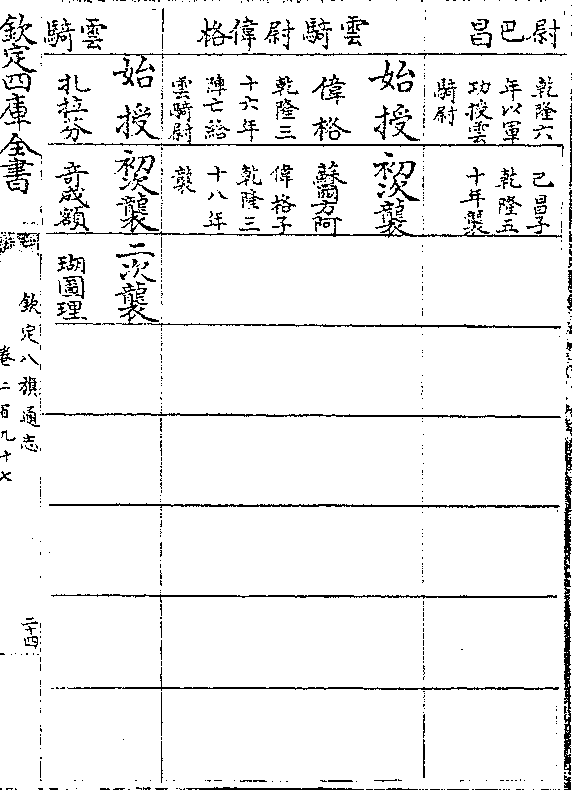 尉巴昌
乾隆六
年以軍
功授雲
騎尉
巴昌子
乾隆五
十年襲
雲騎尉偉格
始授
偉格
乾隆三
十六年
陣亡給
雲騎尉
初次襲
蘇爾方阿
偉格子
乾隆三
十八年
襲
雲騎
始授
扎拉分
初次襲
奇成額
二次襲
瑚圖理
欽定四庫全書
欽定八旗通志
卷二百九十七
二十四